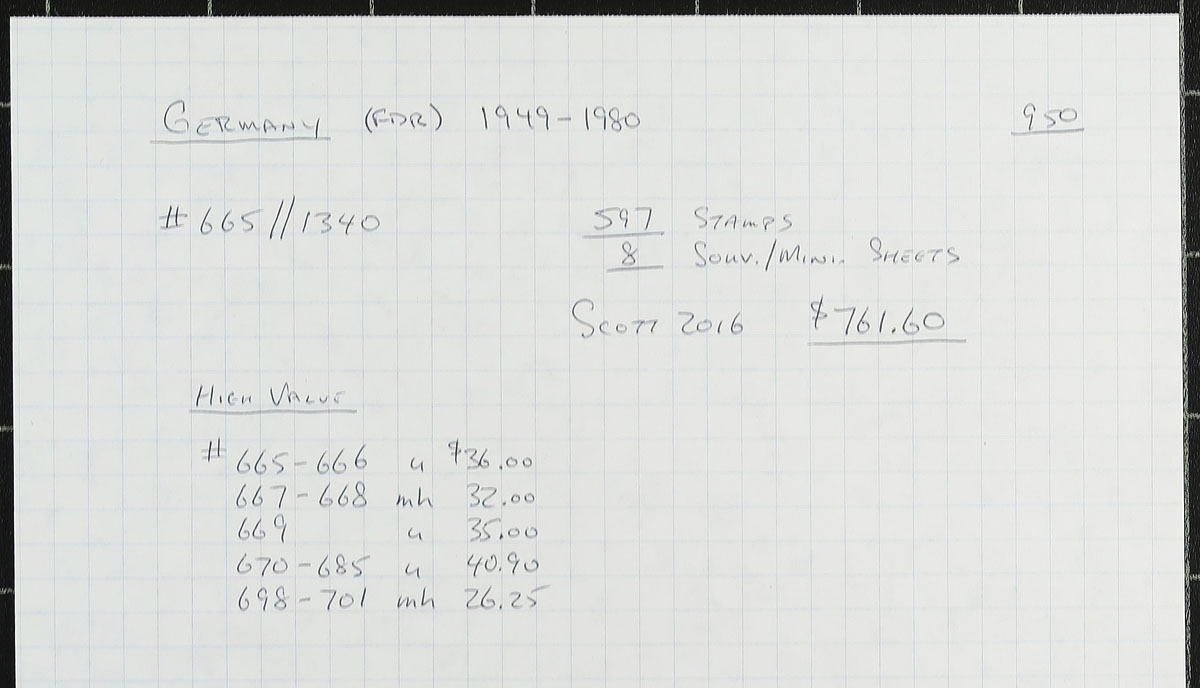 GERMANY (FDR) 1949-1980 950
#665//1340 597 STAMPS
8 SOUV./MINI. SHEETS
SCOTT 2016 $761.60
HIGH VALUE
# 665-666 u $36.00
667-668 mh 32.00
669 u 35.00
670-685 u 40.90
698-701 mh 26.25